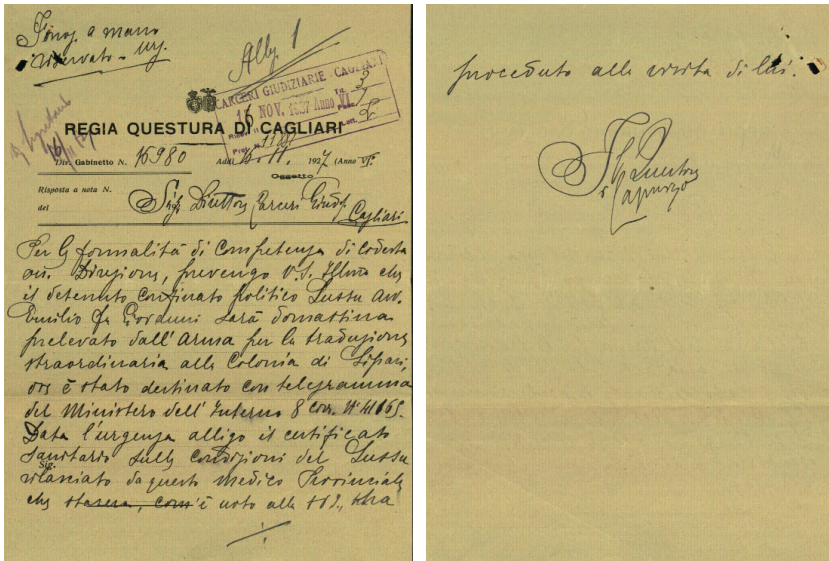 a mano
riservato - urg.
Alleg. 1
CARCERI GIUDIZIARIE CAGLIARI
15 NOV. 1927 Anno VI
REGIA QUESTURA DI CAGLIARI
Dir. Gabinetto N. 16980 Addì 15. 11. 1927 (Anno VI)
Oggetto
Risposta a nota N.
del
Sig. Direttore Carceri Giud.
Cagliari
Per le formalità di competenza di codesta
on. Direzione, prevengo V.S. Ill.ma che
il detenuto confinato politico Lussu Avv.
Emilio fu Giovanni sarà domattina
prelevato dall'Arma per la traduzione
straordinaria alla Colonia di Lipari,
ove è stato destinato con telegramma
del Ministero dell'Interno 8 corr. N° 41165.
Data l'urgenza alligo il certificato
sanitario sulle condizioni del Lussu
Sig.
rilasciato da questo Medico Provinciale
che stasera, com'è noto alla S.V., ha
proceduto alla visita di lui.
Il Questore